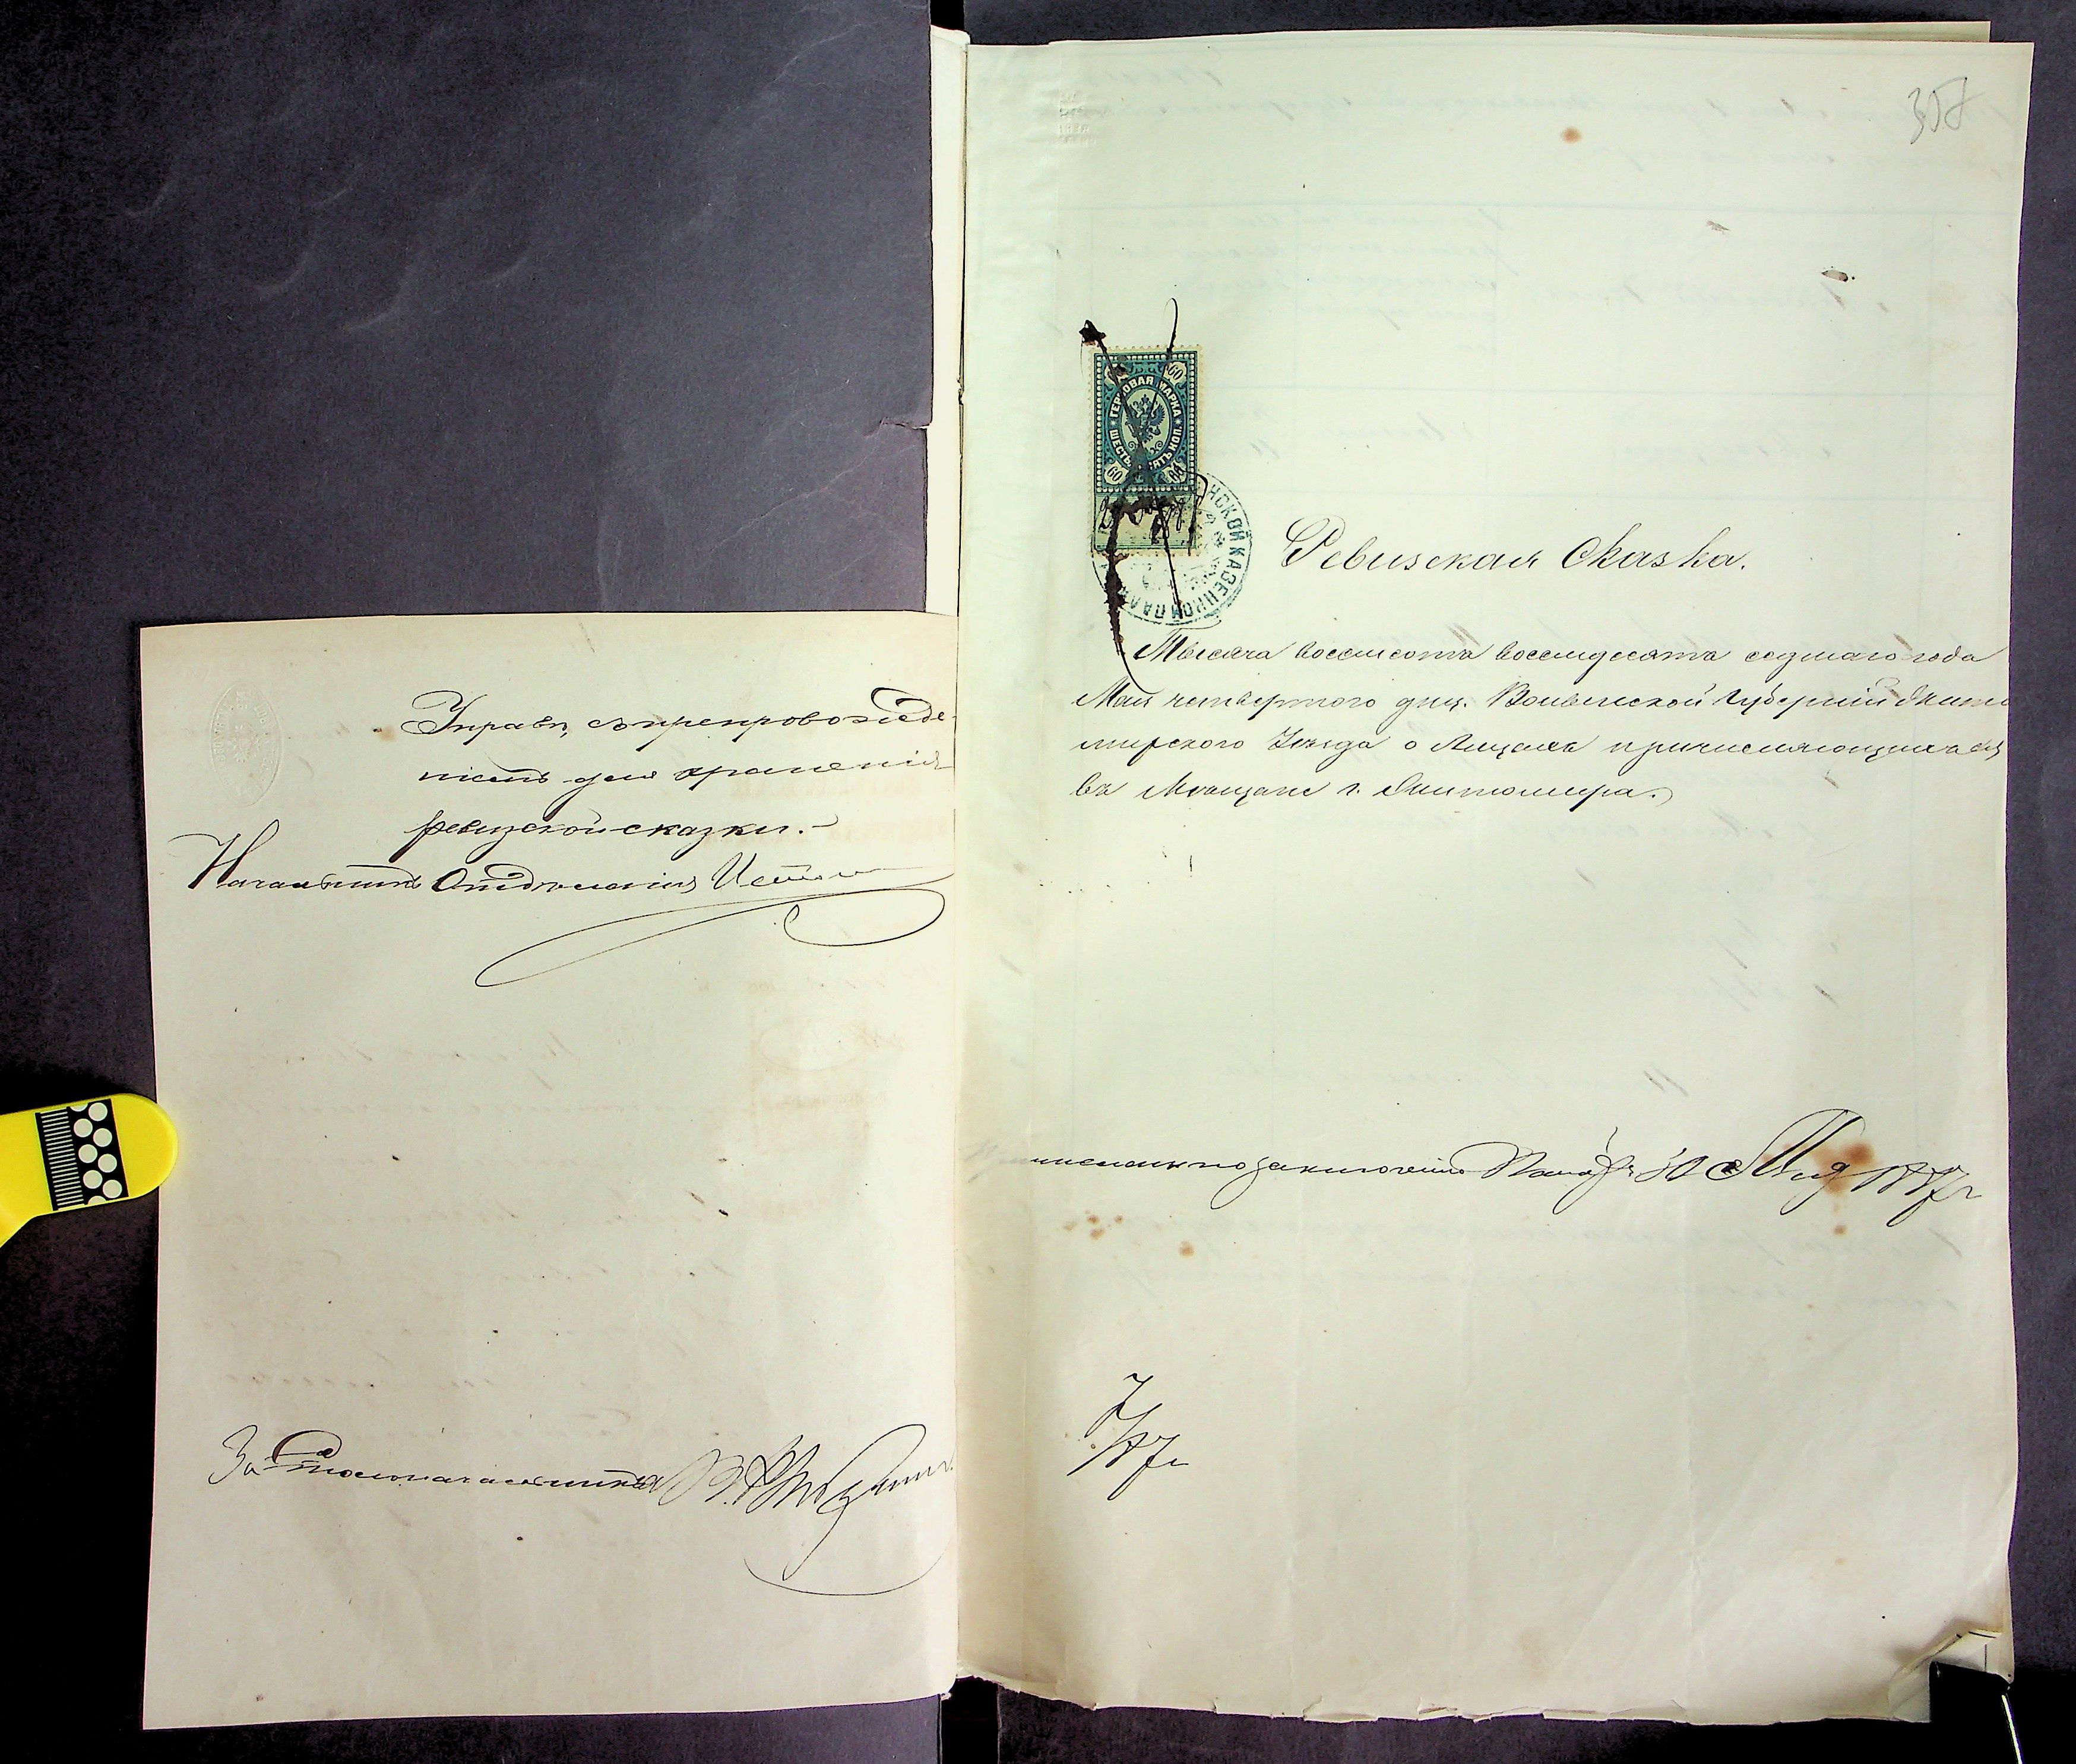 Управѣ, съ препровожде-
ніемъ для храненія
ревизской сказки.-
Начальникъ Отдѣленія
За Столоначальника
358
60
ГЕРБОВАЯ МАРКА
ШЕСТЬДЕСЯТЪ КОП.
60
НСКОЙ КАЗЕННОЙ ПАЛА
Ревизская Сказка.
Тысяча восемьсотъ восемьдесятъ седьмаго года
Мая четвертаго дня. Волынской Губерніи Жито
мирскаго Уѣзда о Лицахъ причисляющихся
въ Мѣщане г. Житомира.
по заключенію Палаты 30 Мая 1887 г